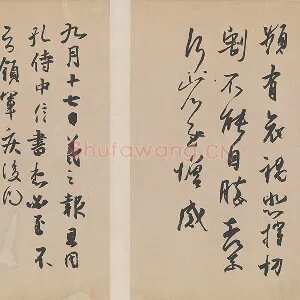 頻有哀禍悲摧切
割不能自勝奈何
奈何省慰增感
九月十七日羲之報且因
孔侍中信書想必至不
知領軍疾後問
Shufawang.CN